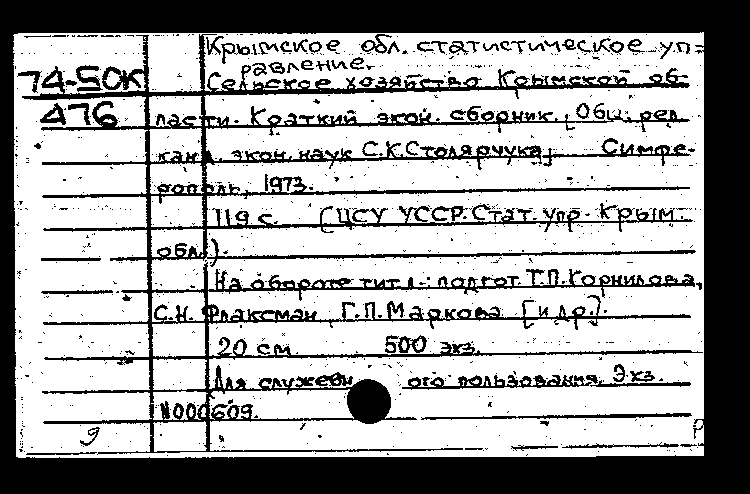 Крымское обл. статистическое уп=
равление.
74-50К Сельское хозяйство Крымской об-
476 ласти. Краткий экон. сборник. [Общ. ред.
канд. экон. наук С.К.Столярчука]. Симфе-
рополь, 1973.
119 с. (ЦСУ УССР. Стат. упр. Крым.
обл.).
На обороте тит. л.: подгот. Т.П.Корнилова,
С.Н. Флаксман, Г.П.Маркова [и др.].
20 см. 500 экз.
Для служебн ого пользования. Экз.
N000609.
9 Р